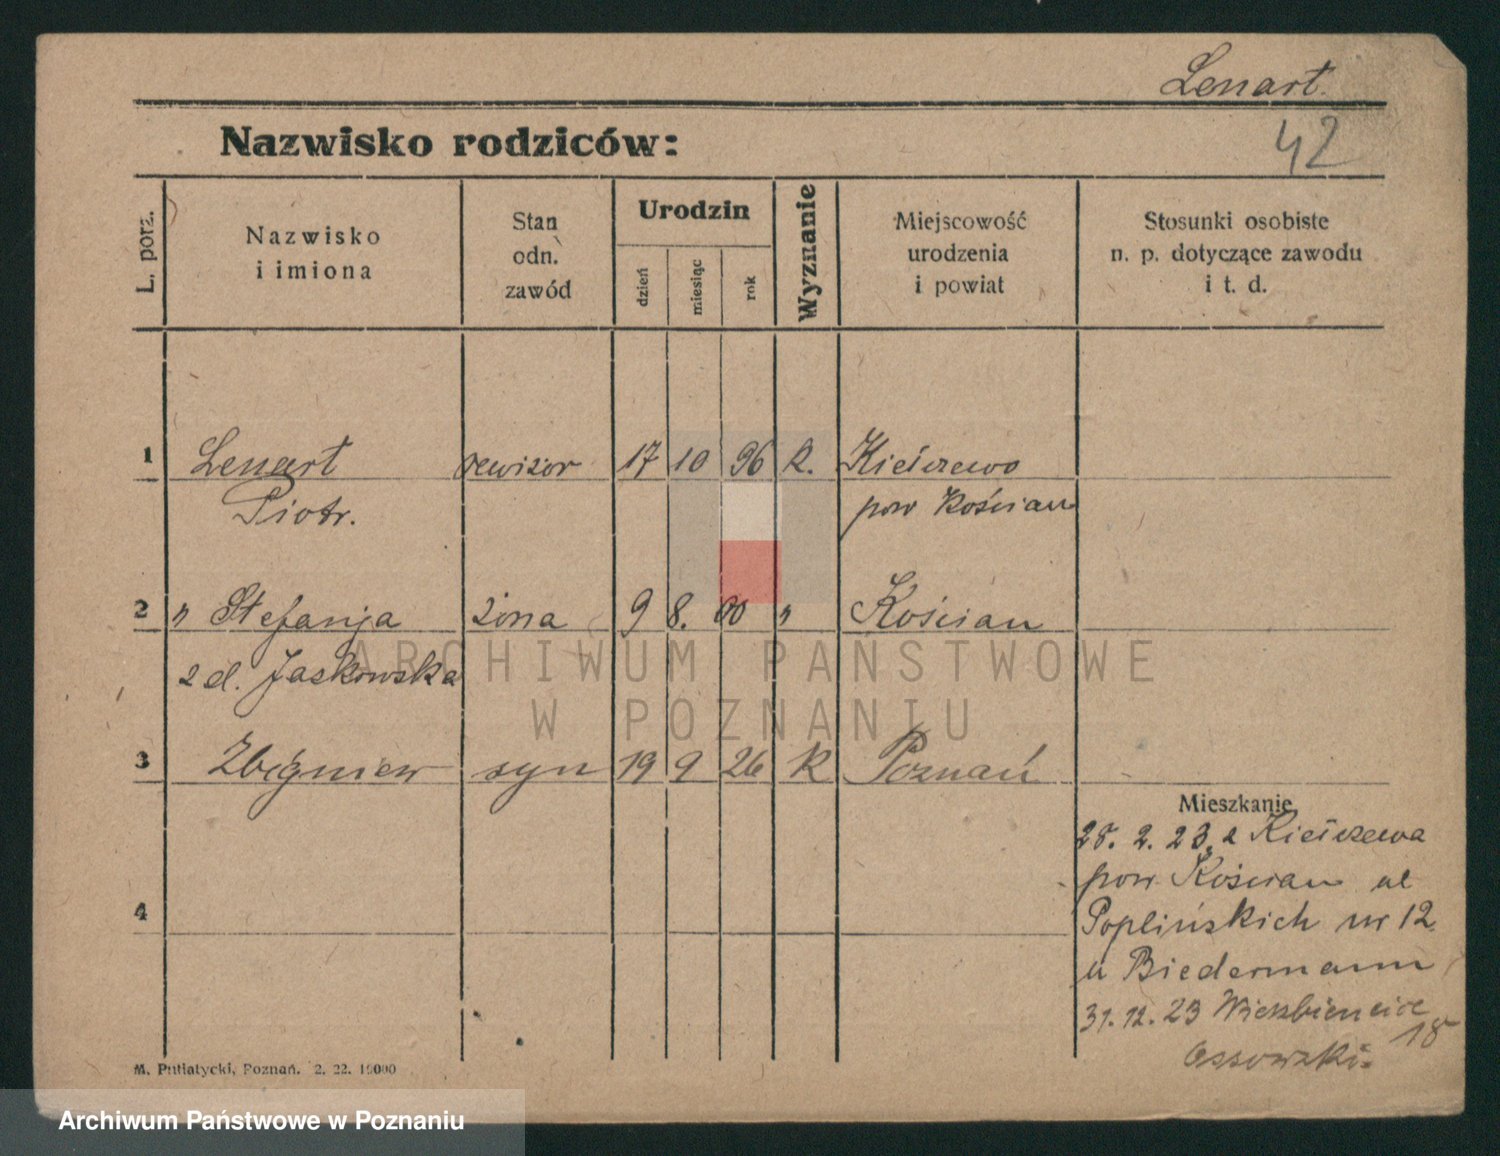 Lenart.
42
Nazwisko rodziców:
L. porz.
Nazwisko
i imiona
Stan
odn.
zawód
Urodzin
dzień
miesiąc
rok
Wyznanie
Miejscowość
urodzenia
i powiat
Stosunki osobiste
n. p. dotyczące zawodu
i t. d.
1 Lenart rewizor 17 10 96 k. Kiełczewo
Piotr. pow Kościan
2 " Stefanja żona 9 8. 00 " Kościan
z d. Jaskowska
3 Zbigniew syn 19 9 26 k Poznań
4
Mieszkanie
28. 2. 23 z Kiełczewa
pow. Kościan ul
Poplińskich nr 12
u Biedermann
31. 12. 23 Wierzbięcice
18
Ossowski
M. Putiatycki, Poznań. 2. 22. 10000
ARCHIWUM PAŃSTWOWE
W POZNANIU
Archiwum Państwowe w Poznaniu